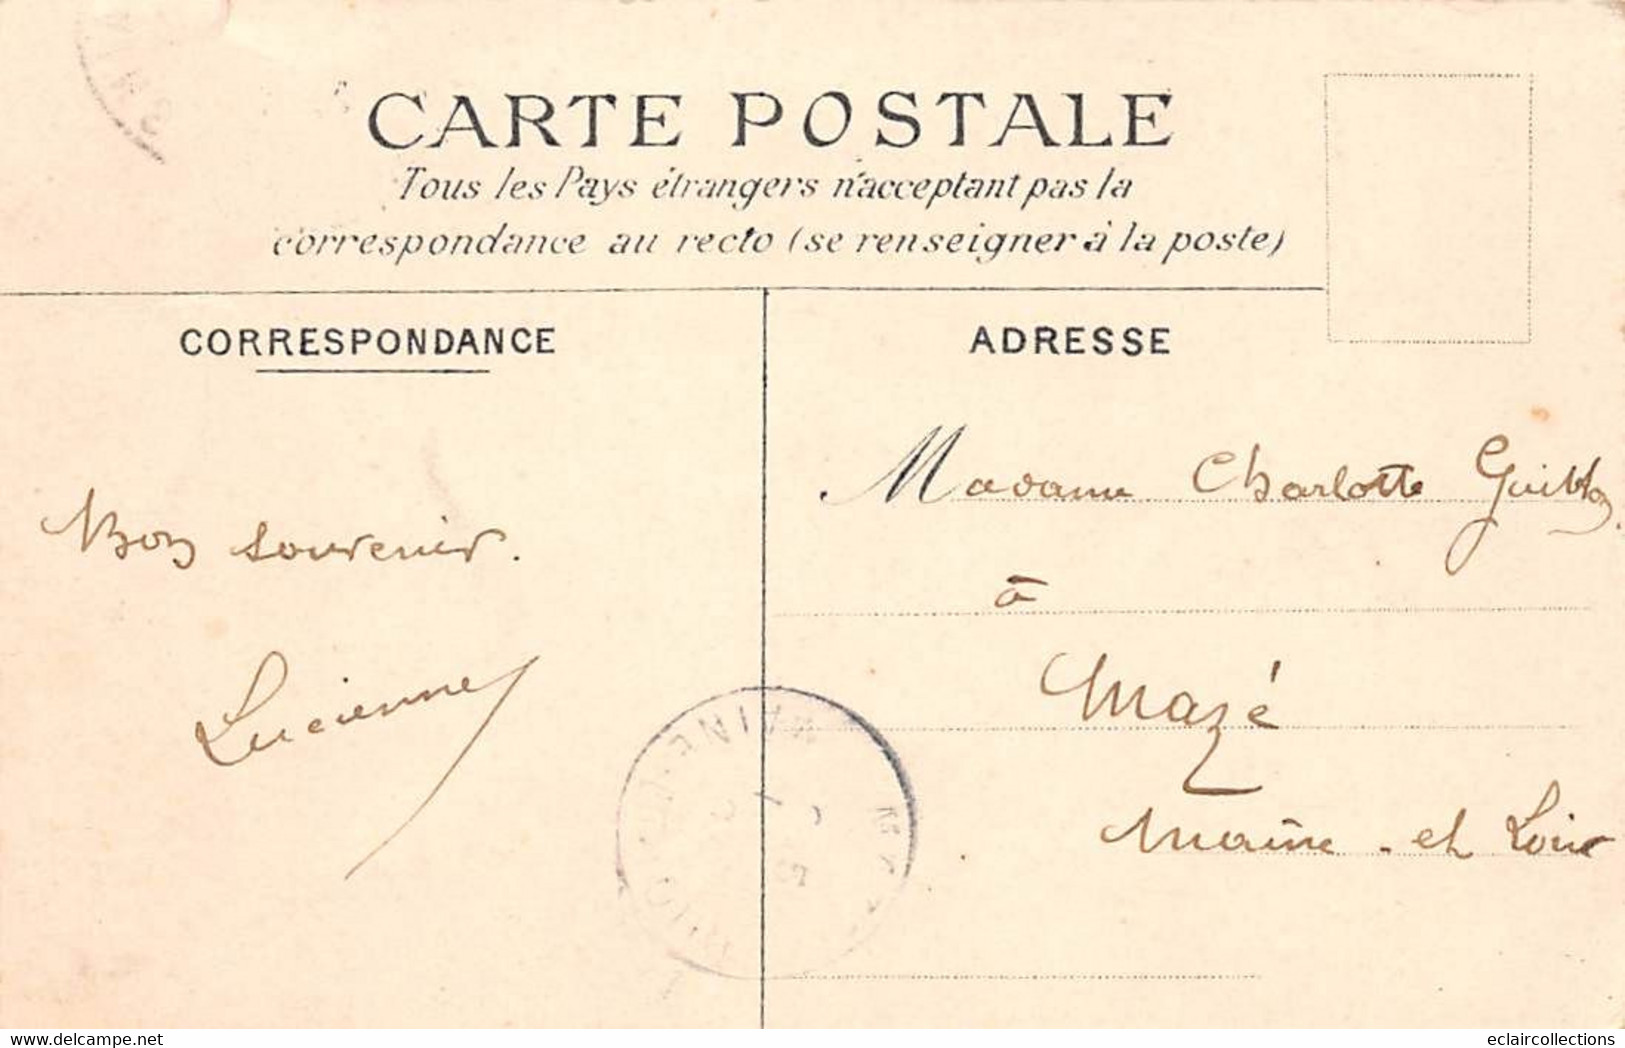 CARTE POSTALE
Tous les Pays étrangers n'acceptant pas la
correspondance au recto (se renseigner à la poste)
CORRESPONDANCE
ADRESSE
Bon souvenir.
Lucienne
Madame Charlotte
à
Mazé
Maine-et Loire
MAINE
eclaircollections